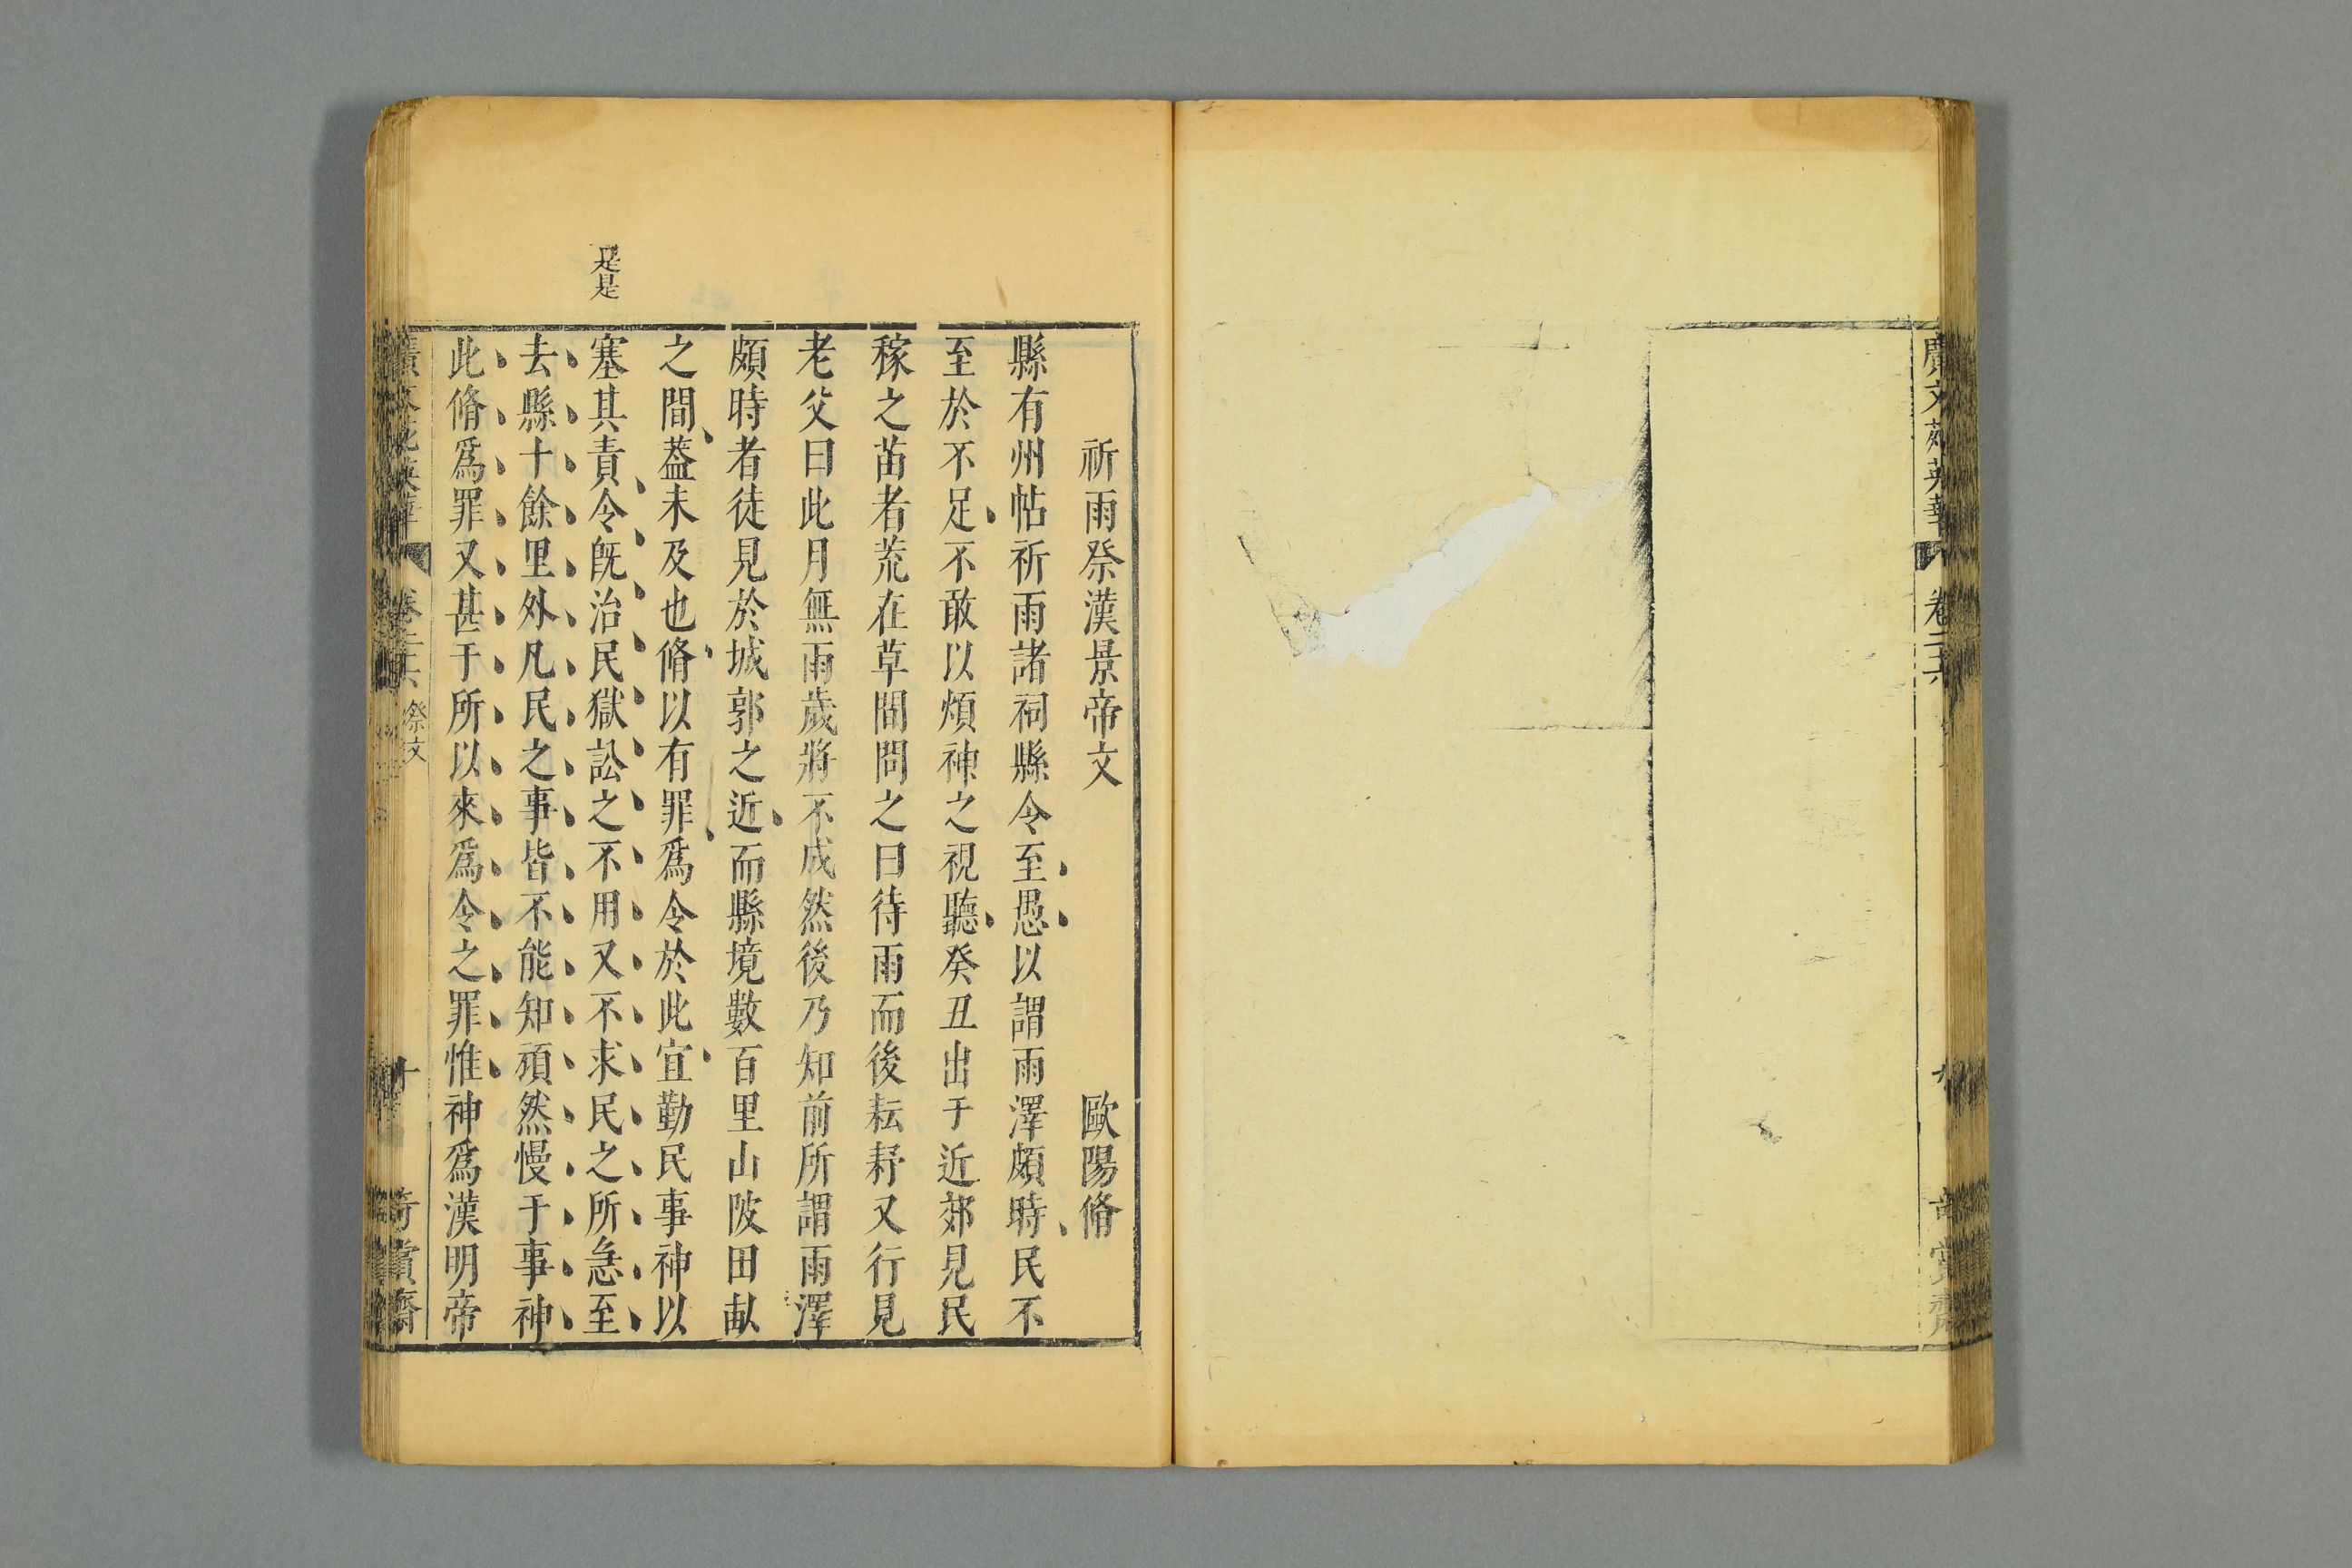 廣文苑英華
卷二六
九
奇賞齋
祈雨祭漢景帝文 歐陽脩
縣有州帖祈雨諸祠縣令至愚以謂雨澤頗時民不
至於不足不敢以煩神之視聽癸丑出于近郊見民
稼之苗者荒在草間問之曰待雨而後耘耔又行見
老父曰此月無雨歲將不成然後乃知前所謂雨澤
頗時者徒見於城郭之近而縣境數百里山陂田畝
之間葢未及也脩以有罪爲令於此宜勤民事神以
塞其責令旣治民獄訟之不用又不求民之所急至
去縣十餘里外凡民之事皆不能知頑然慢于事神
此脩爲罪又甚于所以來爲令之罪惟神爲漢明帝
是是
廣文苑英華
卷二六 祭文
十
奇賞齋